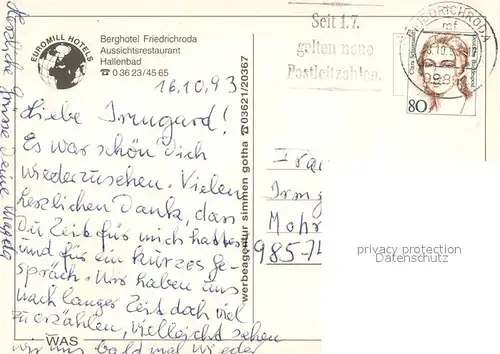 EUROMILL HOTELS
Berghotel Friedrichroda
Aussichtsrestaurant
Hallenbad
☎ 0 36 23/45 65
16.10.93
Liebe Irmgard!
Es war schön Dich
wiederzusehen. Vielen
herzlichen Dank, dass
Du Zeit für mich hattest
und für ein kurzes Ge-
spräch. Wir haben uns
nach langer Zeit doch viel
zu erzählen, vielleicht sehen
wir uns bald mal wieder
WAS
Herzliche Grüsse Deine
werbeagentur simmen gotha ☎ 03621/20367
Seit 1.7.
gelten neue
Postleitzahlen.
FRIEDRICHRODA
mf
80
Frau
Irmg
Mohr
985
privacy protection
Datenschutz